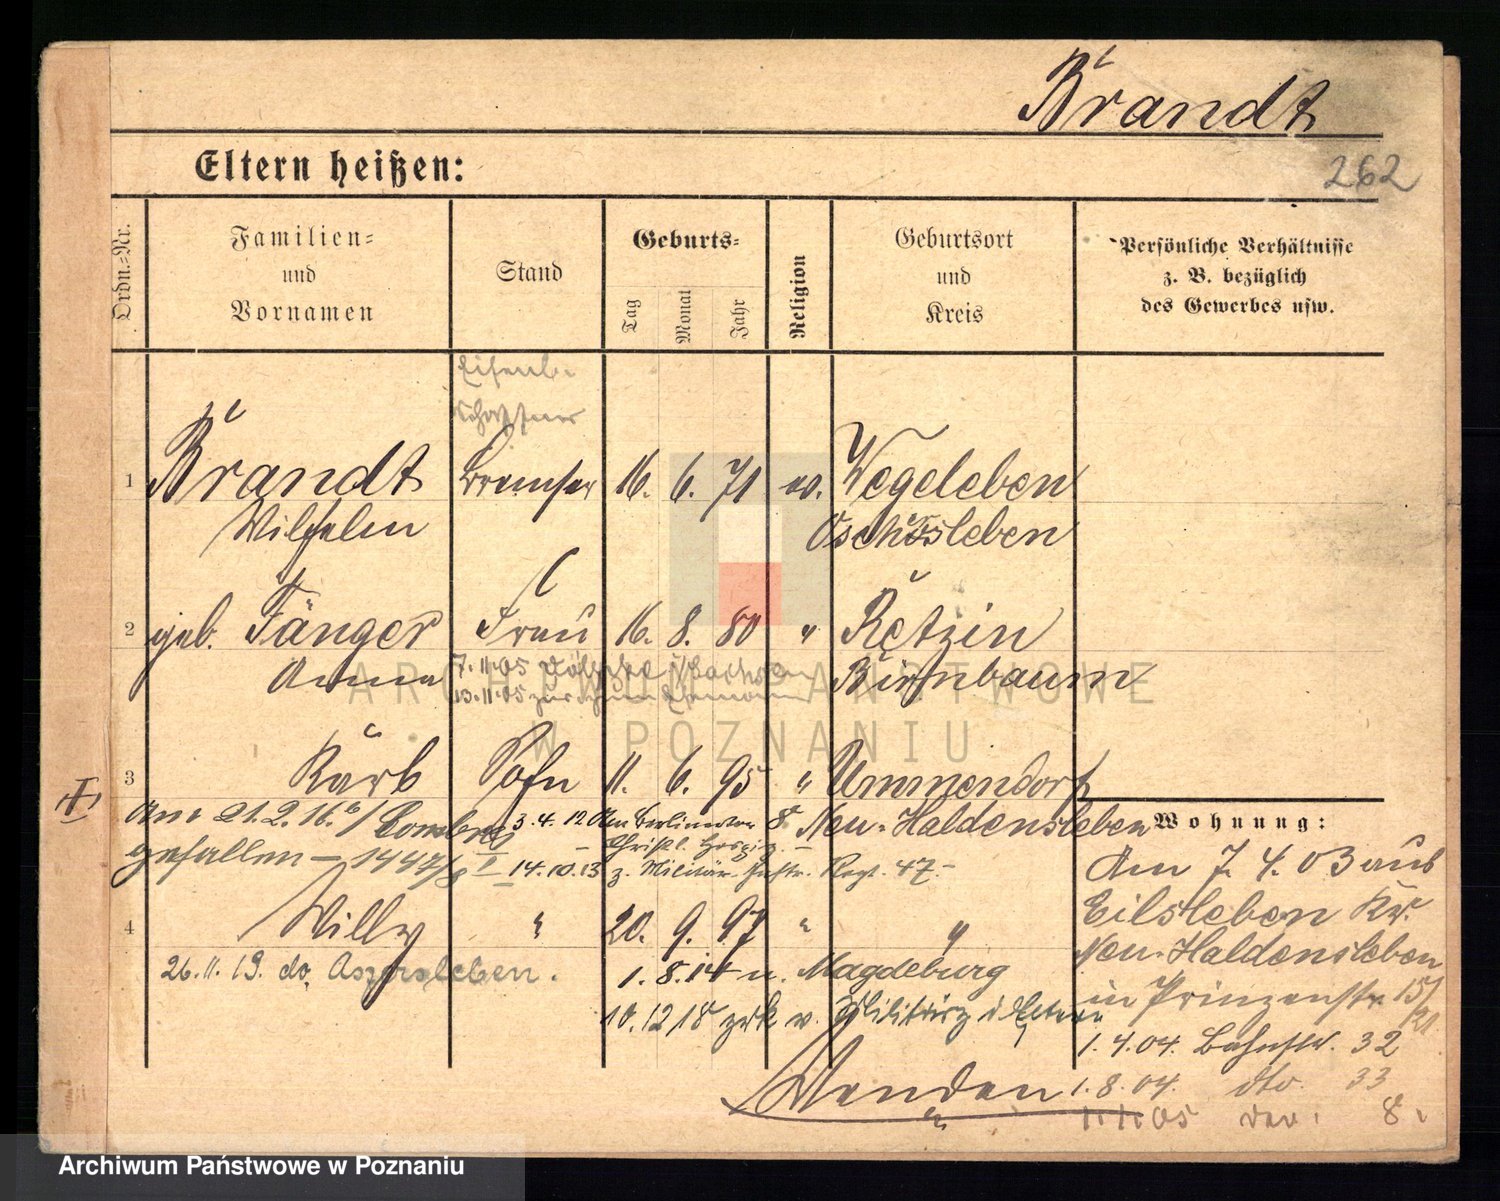 Brandt
262
Eltern heißen:
Ordn.-Nr.
Familien-
und
Vornamen
Stand
Geburts-
Tag
Monat
Jahr
Religion
Geburtsort
und
Kreis
Persönliche Verhältnisse
z. B. bezüglich
des Gewerbes usw.
Eisenb.
schaffner
1 Brandt Bremser 16. 6. 71 ev. Wegeleben
Wilhelm Oschersleben
2 geb. Fänger Frau 16. 8. 80 " Retzin
Anna Birnbaum
7.11.05
13.11.05 zurück zum Ehemann
3 Karl Sohn 11. 6. 95 " Ummendorf
Neu-Haldensleben
Am 21.2.16
3.4.12 Am Berlinertor 8
Christl. Hospiz.
gefallen – 1447/
14.10.13 z. Militär Inftr. Regt. 47 –
4 Willy " 20. 9. 97 " "
26.11.19. do. Aschersleben.
1.8.14 n. Magdeburg
10.12.18 zrk v. Militär z. d. Eltern
Wohnung:
Am 7.4.03 aus
Eilsleben Kr.
Neu-Haldensleben
in Prinzenstr. 15/
21
1.4.04. Bahnstr. 32
1.8.04. dto. 33
1.1.05 8.
Wenden
ARCHIWUM PAŃSTWOWE
W POZNANIU
Archiwum Państwowe w Poznaniu